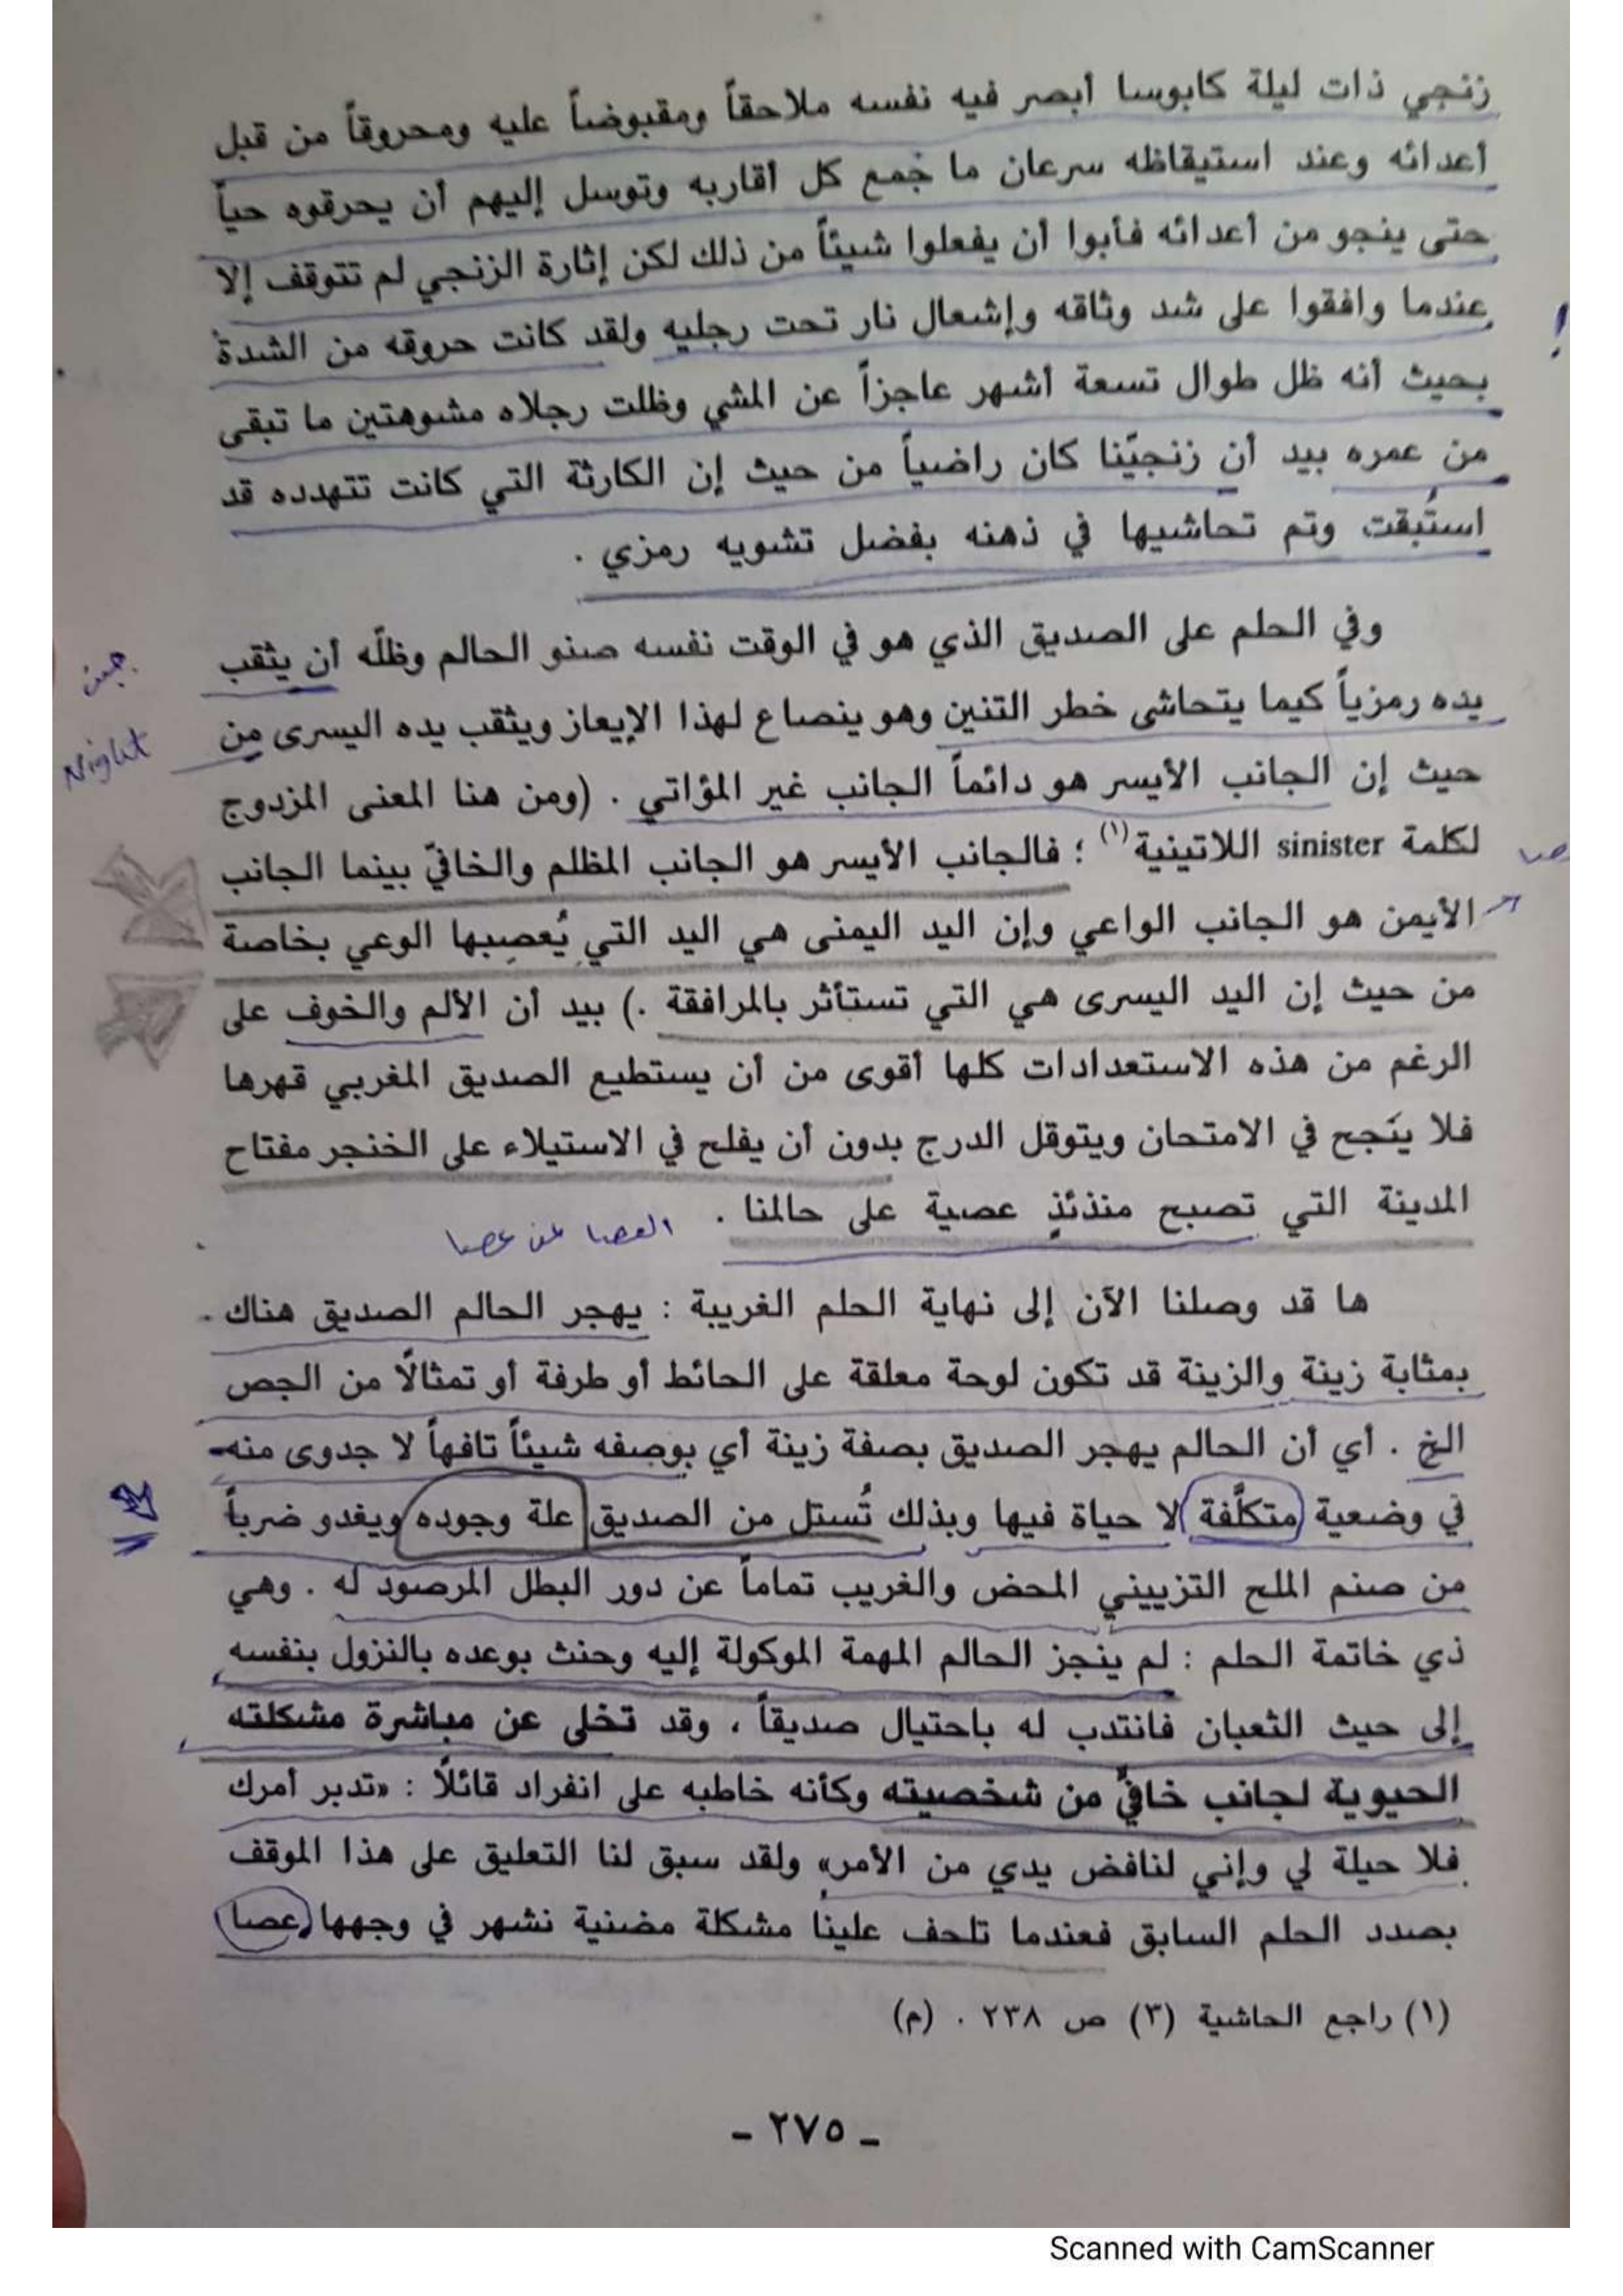 زنجي ذات ليلة كابوسا أبصر فيه نفسه ملاحقاً ومقبوضاً عليه ومحروقاً من قبل
أعدائه وعند استيقاظه سرعان ما جمع كل أقاربه وتوسل إليهم أن يحرقوه حياً
حتى ينجو من أعدائه فأبوا أن يفعلوا شيئاً من ذلك لكن إثارة الزنجي لم تتوقف إلا
عندما وافقوا على شد وثاقه وإشعال نار تحت رجليه ولقد كانت حروقه من الشدة
!
بحيث أنه ظل طوال تسعة أشهر عاجزاً عن المشي وظلت رجلاه مشوهتين ما تبقى
من عمره بيد أن زنجيّنا كان راضياً من حيث إن الكارثة التي كانت تتهدده قد
استُبقت وتم تحاشيها في ذهنه بفضل تشويه رمزي .
وفي الحلم على الصديق الذي هو في الوقت نفسه صنو الحالم وظلّه أن يثقب
يده رمزياً كيما يتحاشى خطر التنين وهو ينصاع لهذا الإيعاز ويثقب يده اليسرى من
Night
حيث إن الجانب الأيسر هو دائماً الجانب غير المؤاتي . (ومن هنا المعنى المزدوج
لكلمة sinister اللاتينية(١) ؛ فالجانب الأيسر هو الجانب المظلم والخافيّ بينما الجانب
الأيمن هو الجانب الواعي وإن اليد اليمنى هي اليد التي يُعصِبها الوعي بخاصة
من حيث إن اليد اليسرى هي التي تستأثر بالمرافقة .) بيد أن الألم والخوف على
الرغم من هذه الاستعدادات كلها أقوى من أن يستطيع الصديق المغربي قهرها
فلا ينَجح في الامتحان ويتوقل الدرج بدون أن يفلح في الاستيلاء على الخنجر مفتاح
المدينة التي تصبح منذئذٍ عصية على حالمنا .
العصا عن عصا
ها قد وصلنا الآن إلى نهاية الحلم الغريبة : يهجر الحالم الصديق هناك
بمثابة زينة والزينة قد تكون لوحة معلقة على الحائط أو طرفة أو تمثالًا من الجص
الخ . أي أن الحالم يهجر الصديق بصفة زينة أي بوصفه شيئاً تافهاً لا جدوى منه
في وضعية متكلَّفة لا حياة فيها وبذلك تُستل من الصديق علة وجوده ويغدو ضرباً
من صنم الملح التزييني المحض والغريب تماماً عن دور البطل المرصود له . وهي
ذي خاتمة الحلم : لم ينجز الحالم المهمة الموكولة إليه وحنث بوعده بالنزول بنفسه
إلى حيث الثعبان فانتدب له باحتيال صديقاً ، وقد تخلى عن مباشرة مشكلته
الحيوية لجانب خافيٍّ من شخصيته وكأنه خاطبه على انفراد قائلًا : «تدبر أمرك
فلا حيلة لي وإني لنافض يدي من الأمر» ولقد سبق لنا التعليق على هذا الموقف
بصدد الحلم السابق فعندما تلحف علينا مشكلة مضنية نشهر في وجهها عصا
(١) راجع الحاشية (٣) ص ٢٣٨ . (م)
ـ ٢٧٥ ـ
Scanned with CamScanner